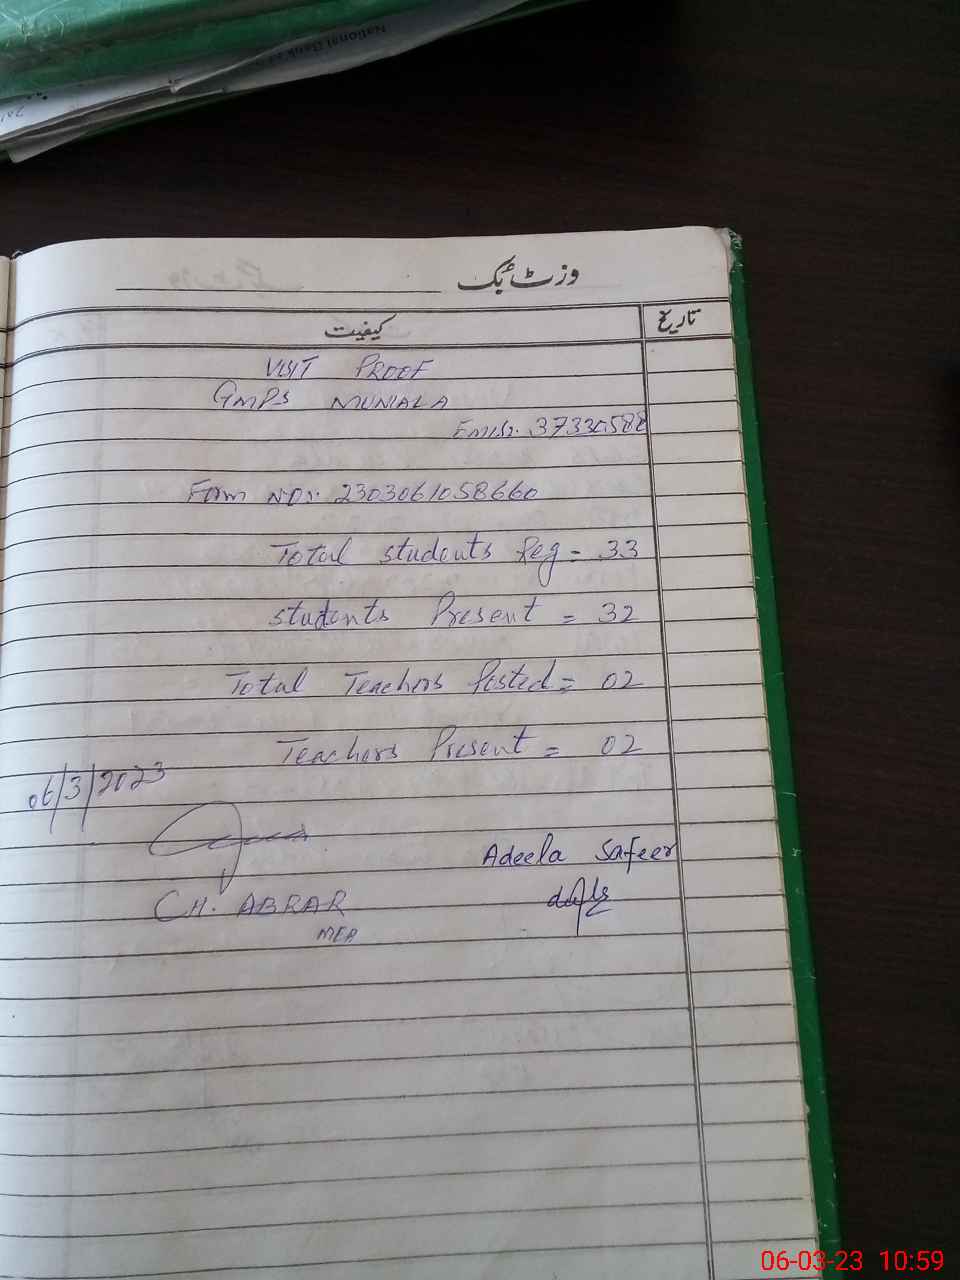 National Bank
وزٹ بُک
کیفیت
تاریخ
VISIT PROOF
GMPS MUNIALA
Emis. 37330588
Form NOs. 2303061058660
Total students Reg = 33
students Present = 32
Total Teachers Posted = 02
Teachers Present = 02
06/3/2023
Adeela Safeer
CH. ABRAR
MEA
06-03-23 10:59